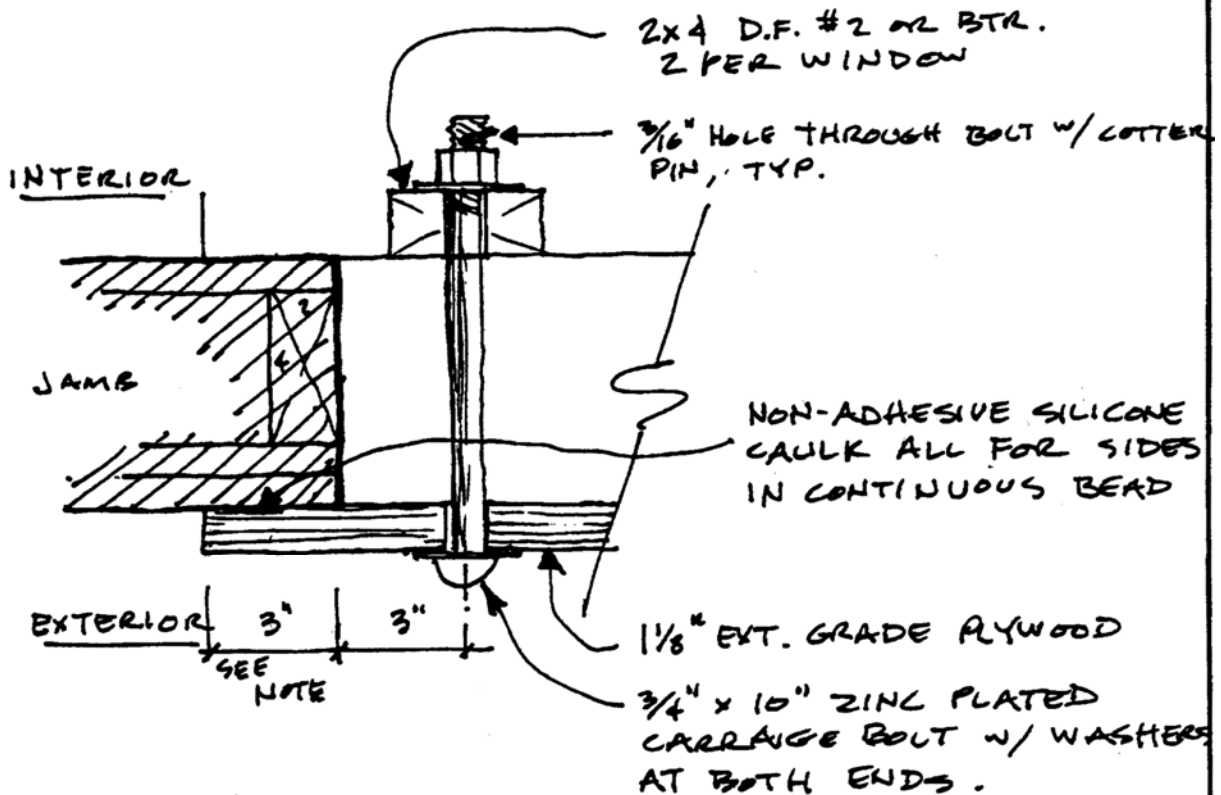 2x4 D.F. #2 OR BTR.
2 PER WINDOW
3/16" HOLE THROUGH BOLT W/ COTTER
PIN, TYP.
INTERIOR
2
4
JAMB
NON-ADHESIVE SILICONE
CAULK ALL FOR SIDES
IN CONTINUOUS BEAD
EXTERIOR
3"
3"
SEE
NOTE
1 1/8" EXT. GRADE PLYWOOD
3/4" x 10" ZINC PLATED
CARRAIGE BOLT W/ WASHERS
AT BOTH ENDS.